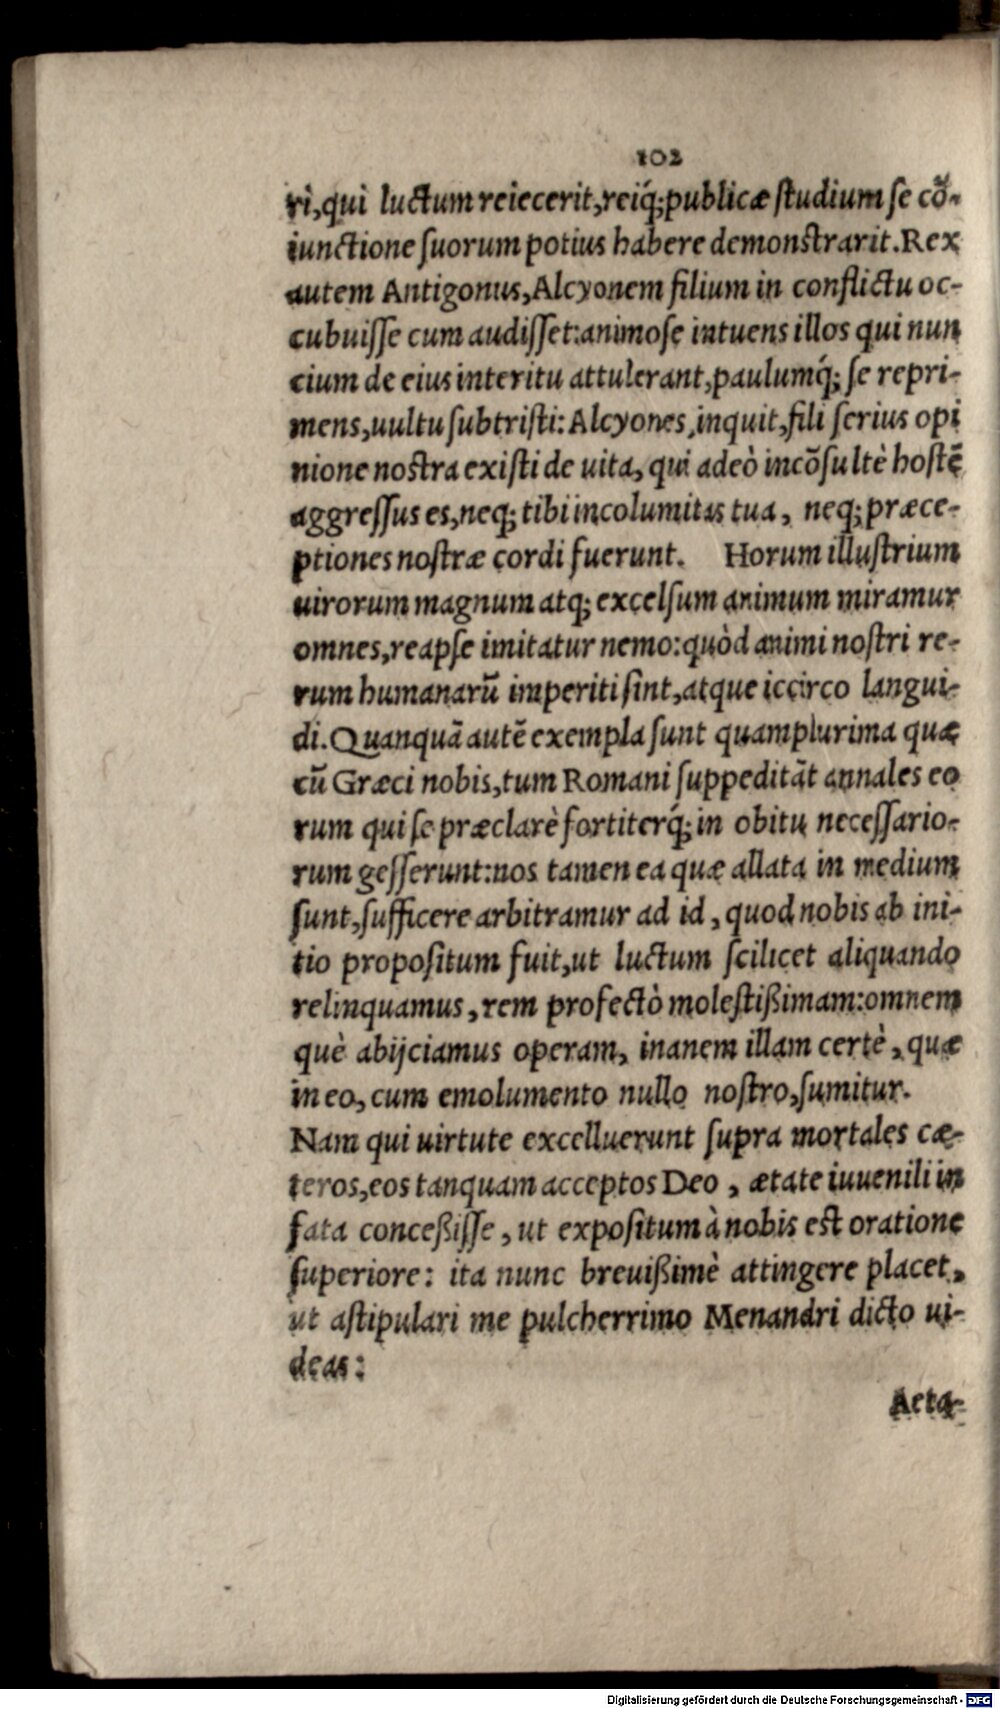 102
ri, qui luctum reiecerit, reiq́; publicæ ſtudium ſe cõ-
iunctione ſuorum potius habere demonſtrarit. Rex
autem Antigonus, Alcyonem filium in conflictu oc-
cubuiſſe cum audiſſet: animoſe intuens illos qui nun
cium de eius interitu attulerant, paulumq́; ſe repri-
mens, uultu ſubtriſti: Alcyones, inquit, fili ſerius opi
nione noſtra existi de uita, qui adeò incõſultè hoſtẽ
aggreſſus es, neq; tibi incolumitas tua, neq; præce-
ptiones noſtræ cordi fuerunt. Horum illuſtrium
uirorum magnum atq; excelſum animum miramur
omnes, reapſe imitatur nemo: quòd animi noſtri re-
rum humanarũ imperiti ſint, atque iccirco langui-
di. Quanquã autẽ exempla ſunt quamplurima quæ
cũ Græci nobis, tum Romani ſuppeditãt annales eo
rum qui ſe præclarè fortiterq́; in obitu neceſſario-
rum geſſerunt: nos tamen ea quæ allata in medium
ſunt, ſufficere arbitramur ad id, quod nobis ab ini-
tio propoſitum fuit, ut luctum ſcilicet aliquando
relinquamus, rem profectò moleſtißimam: omnem
què abijciamus operam, inanem illam certè, quæ
in eo, cum emolumento nullo noſtro, ſumitur.
Nam qui uirtute excelluerunt ſupra mortales cæ-
teros, eos tanquam acceptos Deo, ætate iuuenili in
fata conceßiſſe, ut expoſitum à nobis est oratione
ſuperiore: ita nunc breuißimè attingere placet,
ut aſtipulari me pulcherrimo Menandri dicto ui-
deas:
Aeta-
Digitalisierung gefördert durch die Deutsche Forschungsgemeinschaft - DFG